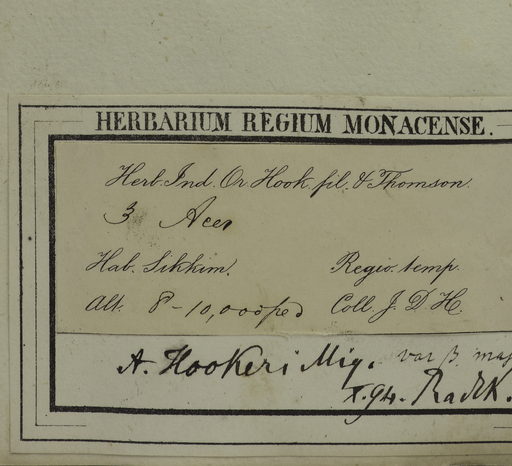 HERBARIUM REGIUM MONACENSE.
Herb. Ind. Or. Hook. fil. & Thomson.
3 Acer
Hab. Sikkim. Regio. temp.
Alt. 8-10,000 ped Coll. J. D. H.
A. Hookeri Miq. var β.
X.94. Radlk.